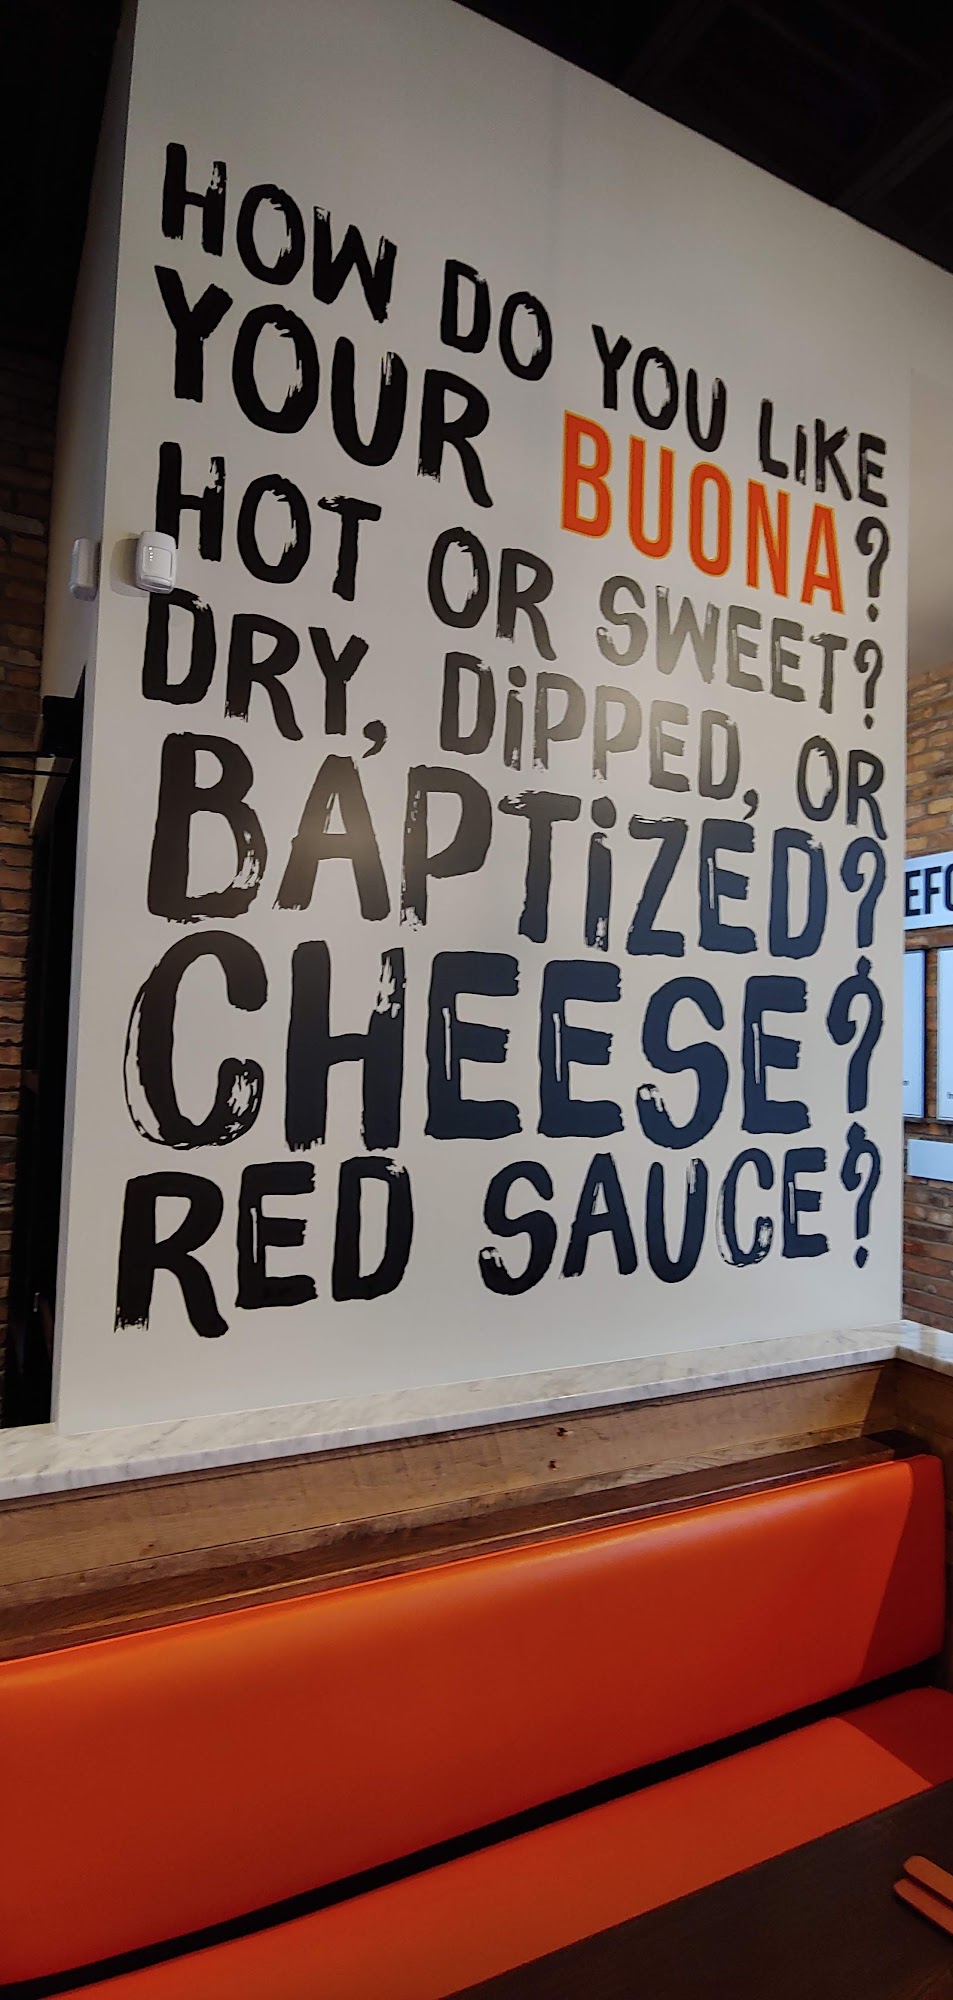 HOW DO YOU LIKE
YOUR BUONA?
HOT OR SWEET?
DRY, DIPPED, OR
BAPTIZED?
CHEESE?
RED SAUCE?